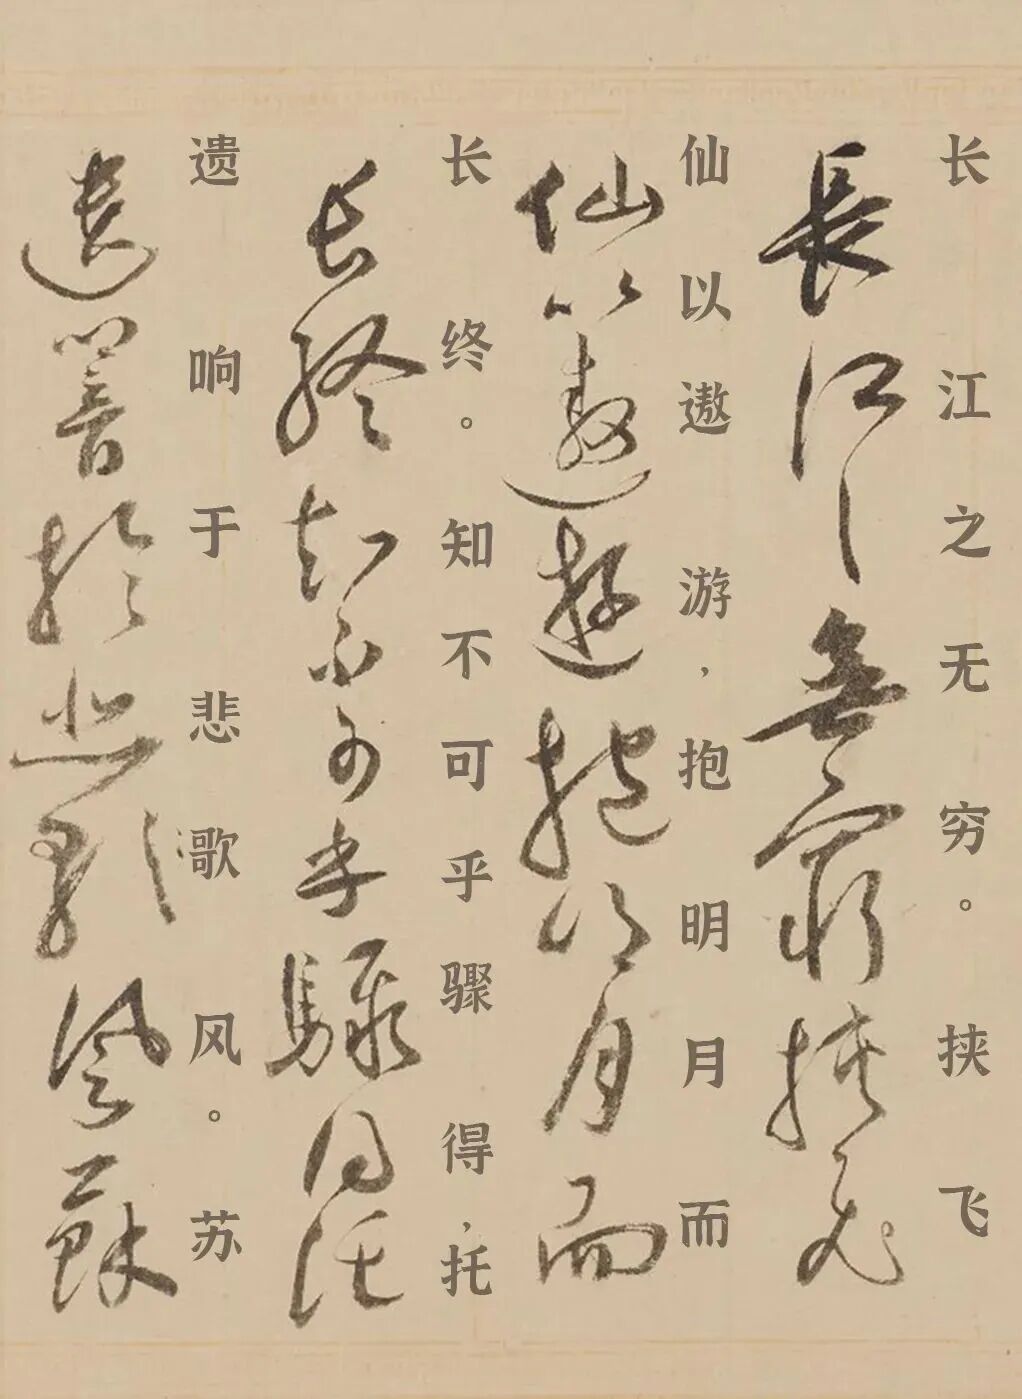 长江之无穷。挟飞
長江之無窮挾飛
仙以遨游，抱明月而
仙以遨遊抱明月而
长终。知不可乎骤得，托
長終知不可乎驟得託
遗响于悲歌风。苏
遺響於悲歌風蘇